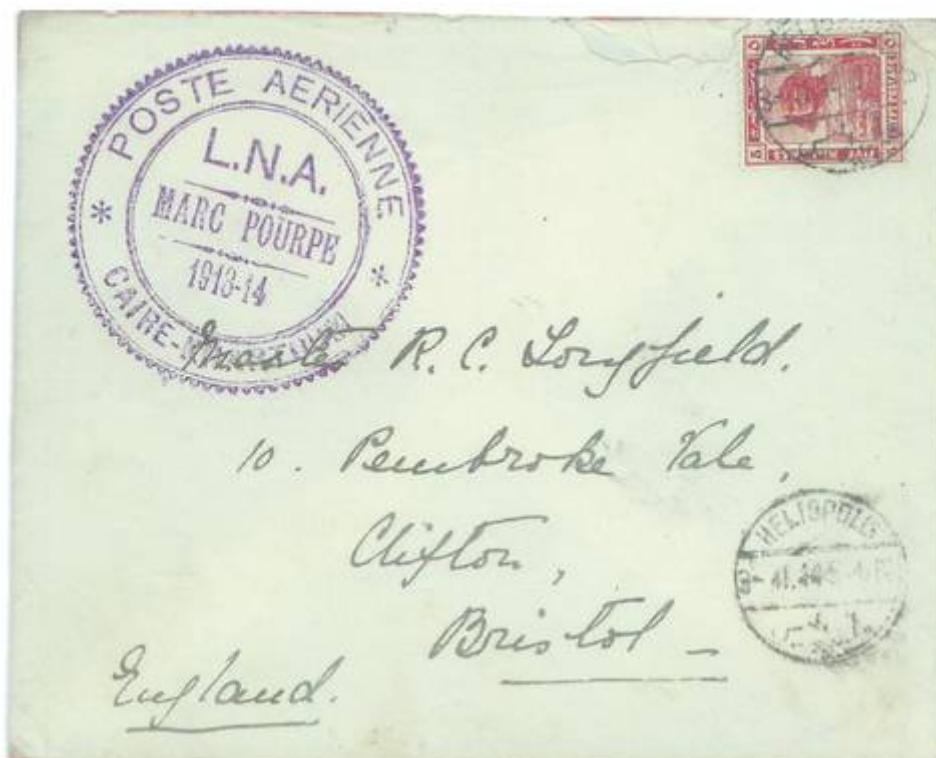 POSTE AERIENNE
L.N.A.
MARC POURPE
1913-14
CAIRE-
R. C. Longfield.
10. Pembroke Vale,
Clifton,
Bristol –
England.
HELIOPOLIS